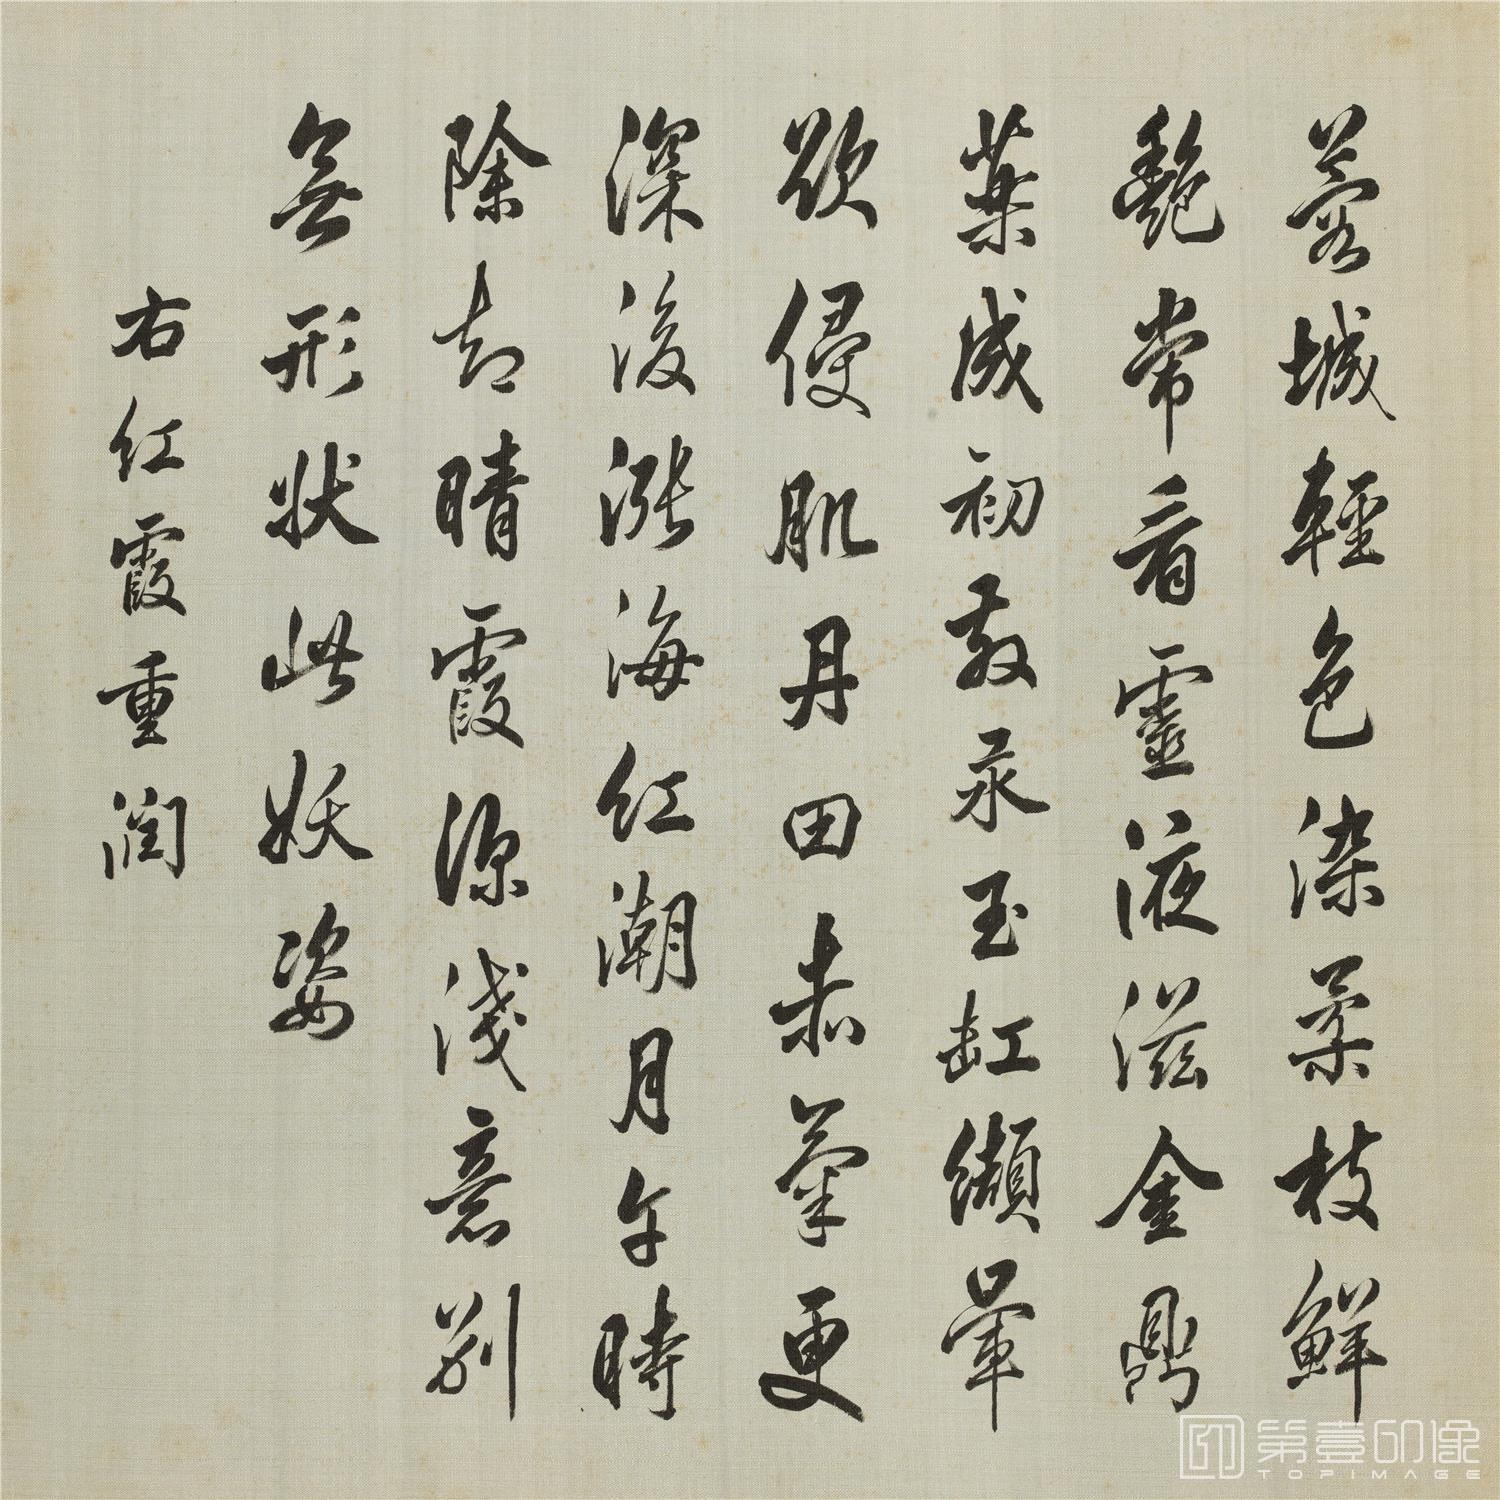 蓉城輕色染柔枝鮮
艷常看靈液滋金鼎
藥成初散汞玉缸纈暈
欲侵肌丹田赤氣更
深後漲海紅潮月午時
除却晴霞深淺意別
無形狀比妖姿
右紅霞重潤
第壹印像
TOPIMAGE